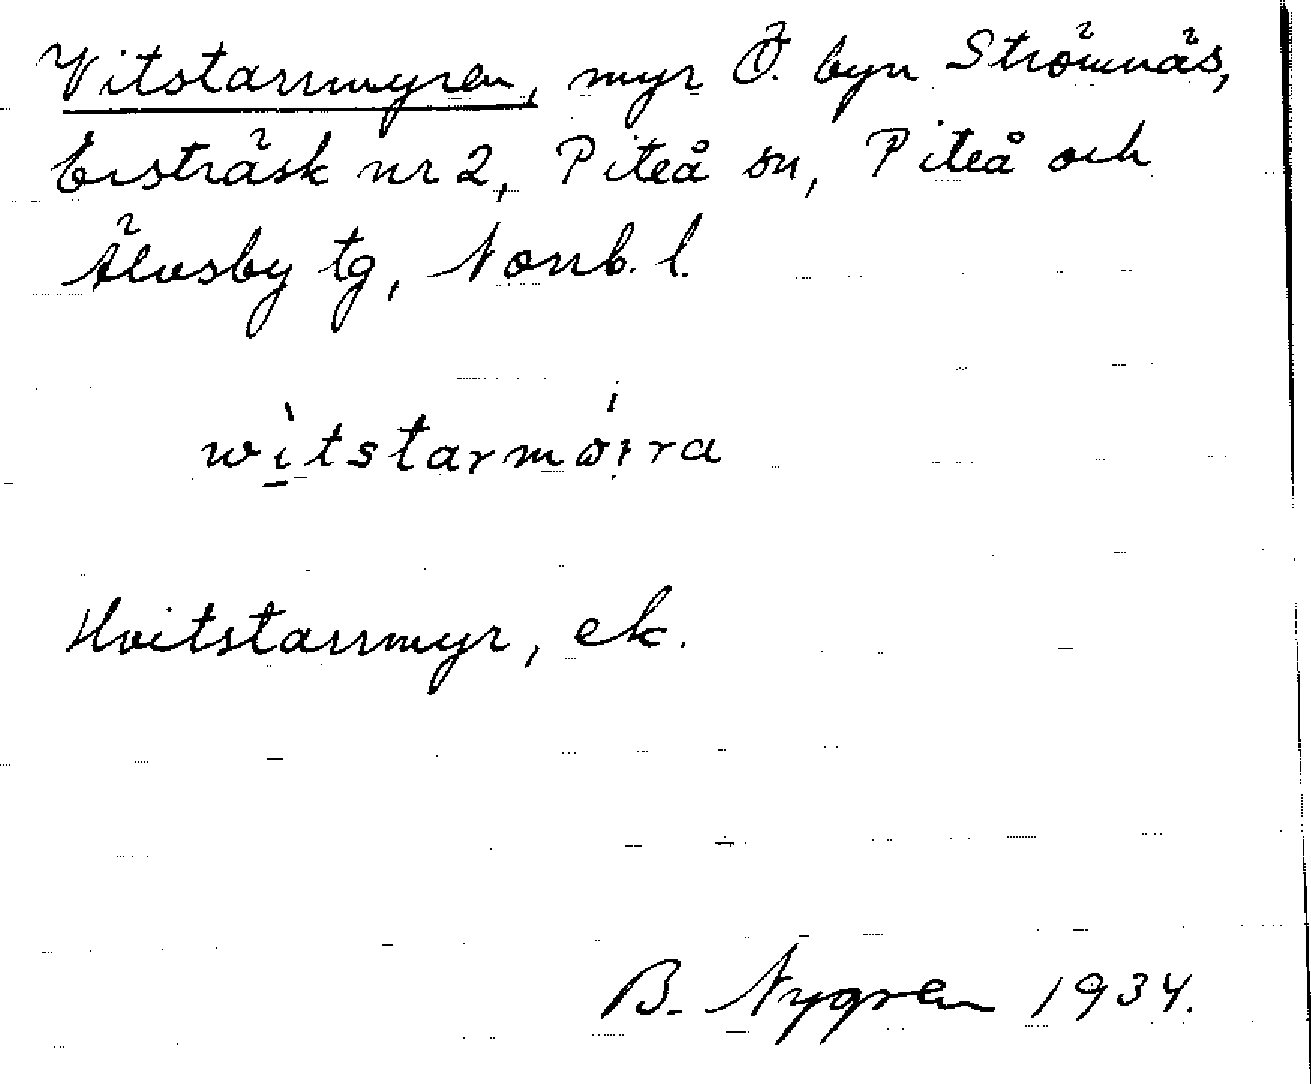 Vitstarrmyren, myr Ö. byn Strömnäs,
Ersträsk nr 2, Piteå sn, Piteå och
Älvsby tg, Norrb. l.
witstarmöira
Hvitstarrmyr, ek.
B. Nygren 1934.